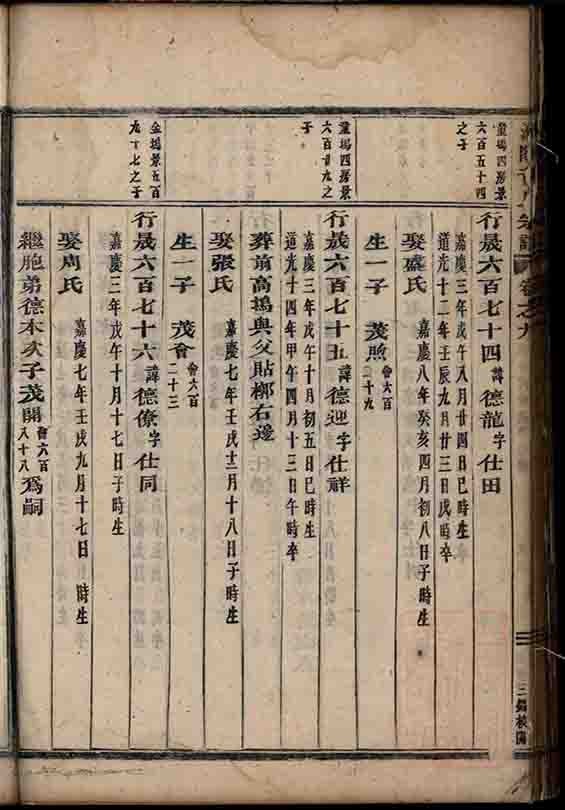 宗譜 卷之九
塋塢四房景
六百五十四
之子
行晟六百七十四 諱德龍字仕田
嘉慶三年戊午八月廿四日巳時生
道光十二年壬辰九月廿三日戌時卒
娶盛氏 嘉慶八年癸亥四月初八日子時生
生一子 茂煦 會六百
二十九
塋塢四房景
六百廿九之
子
行晟六百七十五 諱德迎字仕祥
嘉慶三年戊午十月初五日巳時生
道光十四年甲午四月十三日午時卒
葬前高塢與父貼槨右邊
娶張氏 嘉慶七年壬戌十二月十八日子時生
生一子 茂會 會六百
二十三
金塢景五百
九十七之子
行晟六百七十六 諱德僚字仕同
嘉慶三年戊午十月十七日子時生
娶周氏 嘉慶七年壬戌九月十七日 時生
繼胞弟德本次子茂開 會六百
八十八 為嗣